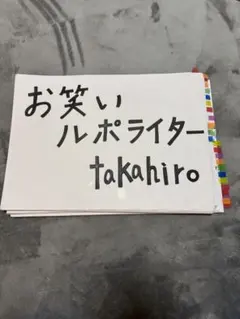 お笑い
ルポライター
takahiro